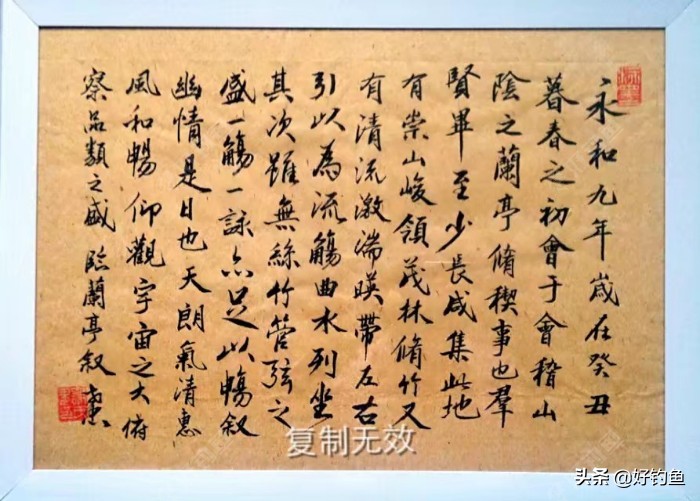 永和九年歲在癸丑
暮春之初會于會稽山
陰之蘭亭脩稧事也羣
賢畢至少長咸集此地
有崇山峻領茂林脩竹又
有清流激湍暎帶左右
引以為流觴曲水列坐
其次雖無絲竹管弦之
盛一觴一詠亦足以暢叙
幽情是日也天朗氣清惠
風和暢仰觀宇宙之大俯
察品類之盛 臨蘭亭叙
复制无效
头条 @好钓鱼